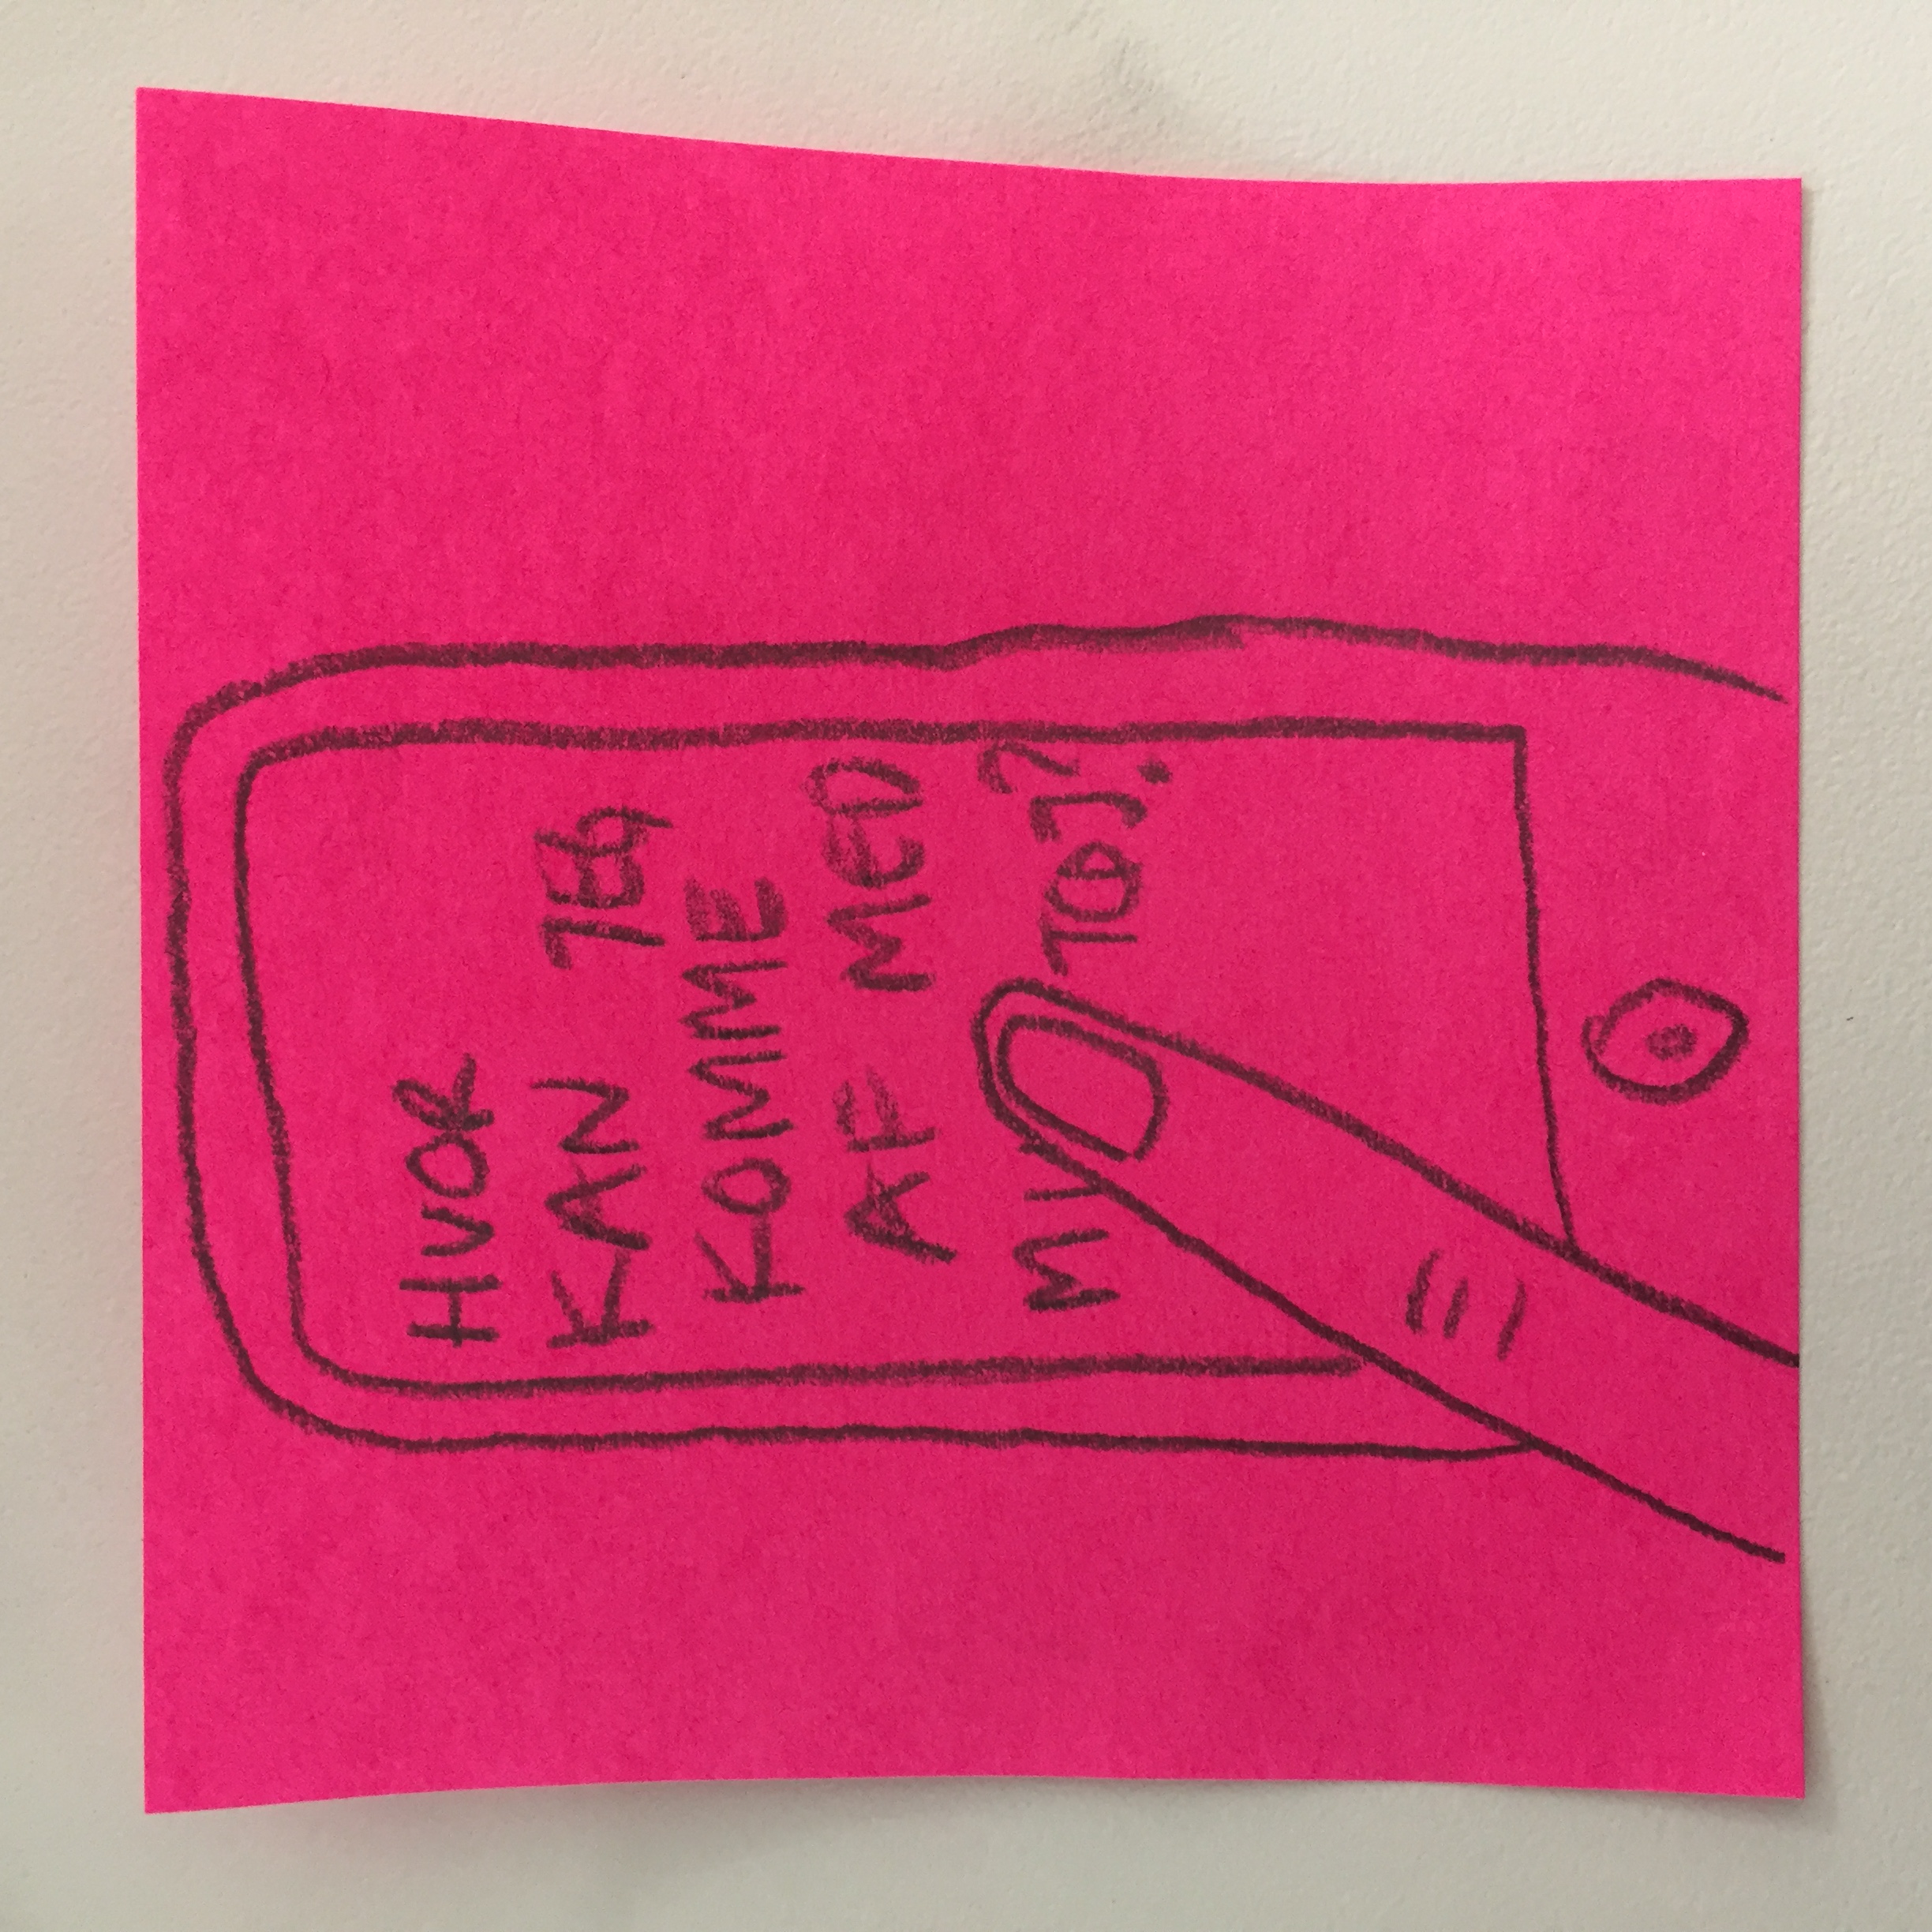 HVOR
KAN JEG
KOMME
AF MED
TØJ?